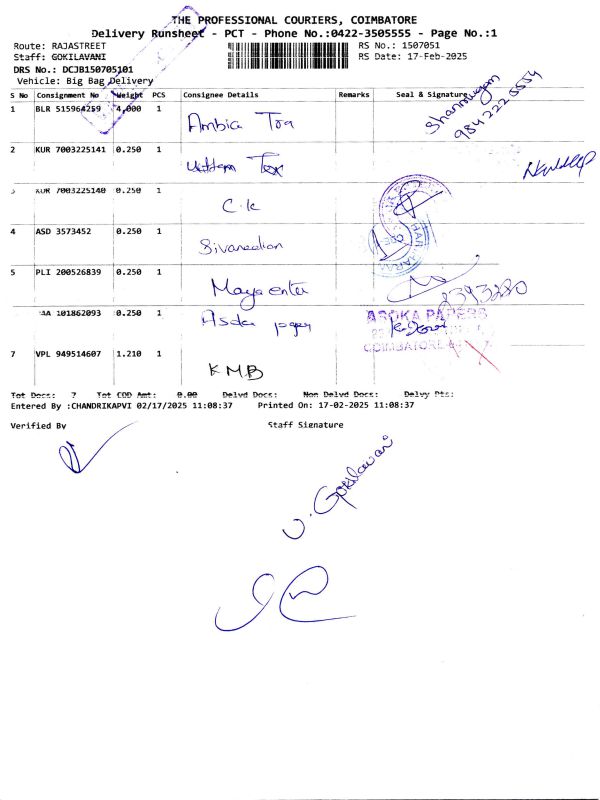 THE PROFESSIONAL COURIERS, COIMBATORE
Delivery Runsheet - PCT - Phone No.:0422-3505555 - Page No.:1
Route: RAJASTREET RS No.: 1507051
Staff: GOKILAVANI RS Date: 17-Feb-2025
DRS No.: DCJB150705101
Vehicle: Big Bag Delivery
S No Consignment No Weight PCS Consignee Details Remarks Seal & Signature
1 BLR 515964259 4.000 1 Ambica Tra Shanmugam
2 KUR 7003225141 0.250 1
3 KUR 7003225140 0.250 1 C.K
4 ASD 3573452 0.250 1
5 PLI 200526839 0.250 1 Maya enter
101862093 0.250 1 ASOKA PAPERS
COIMBATORE
7 VPL 949514607 1.210 1 KMB
Tot Docs: 7 Tot COD Amt: 0.00 Delvd Docs: Non Delvd Docs: Delvy Pts:
Entered By :CHANDRIKAPVI 02/17/2025 11:08:37 Printed On: 17-02-2025 11:08:37
Verified By Staff Signature
V. Gokilavani